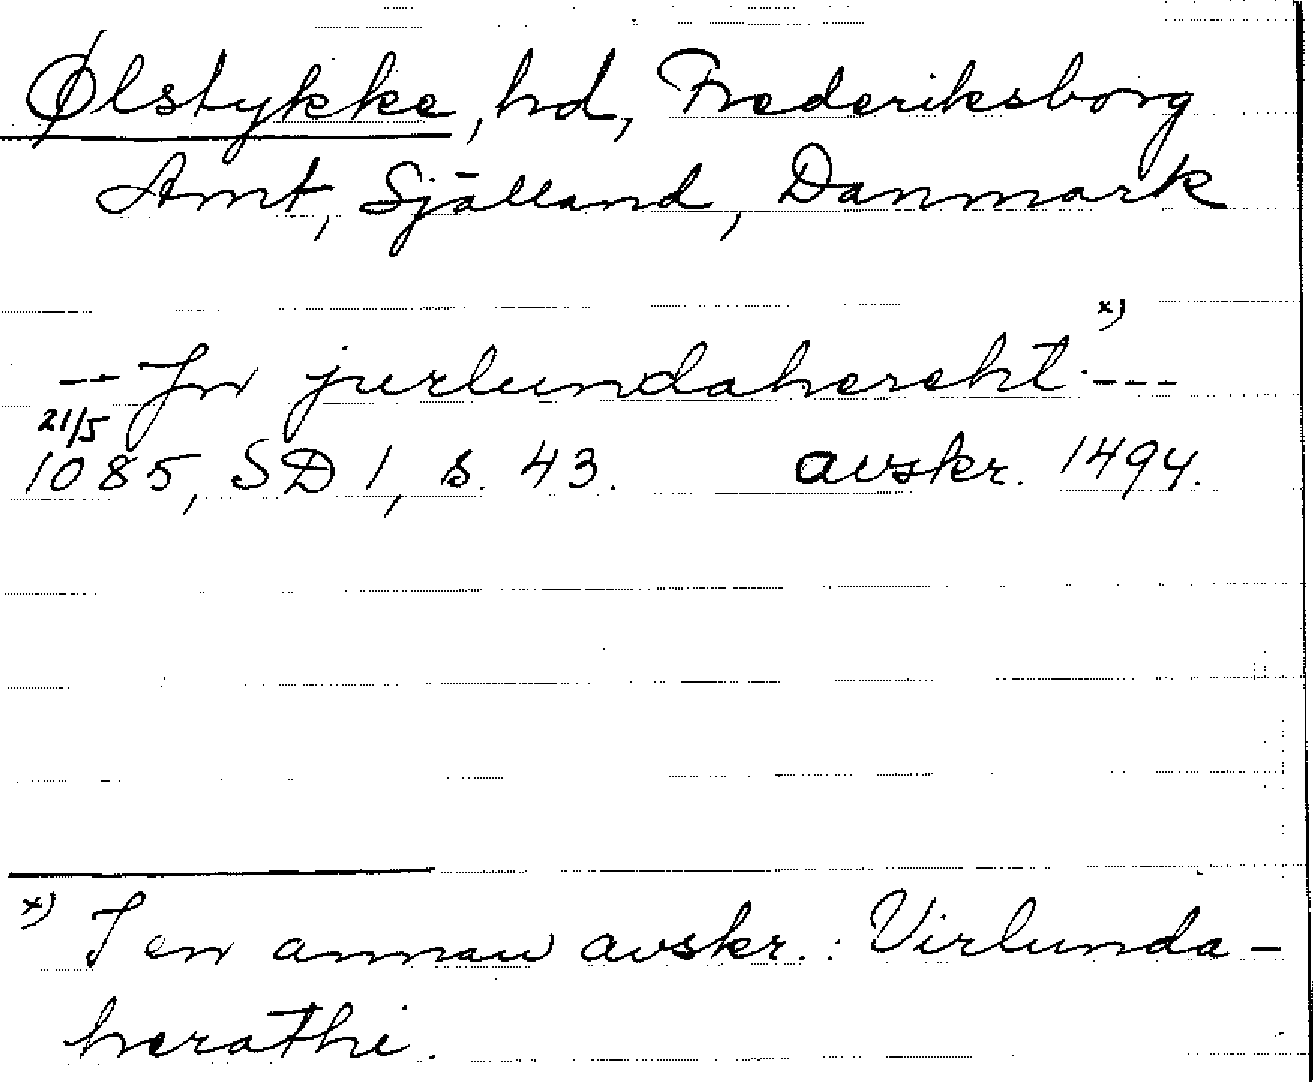 Ølstykke, hd, Frederiksborg
Amt, Själland, Danmark
-- Jn jurlundahereht x) ---
21/5
1085, SD 1, s. 43. avskr. 1494.
x) I en annan avskr.: Virlunda-
herathi.